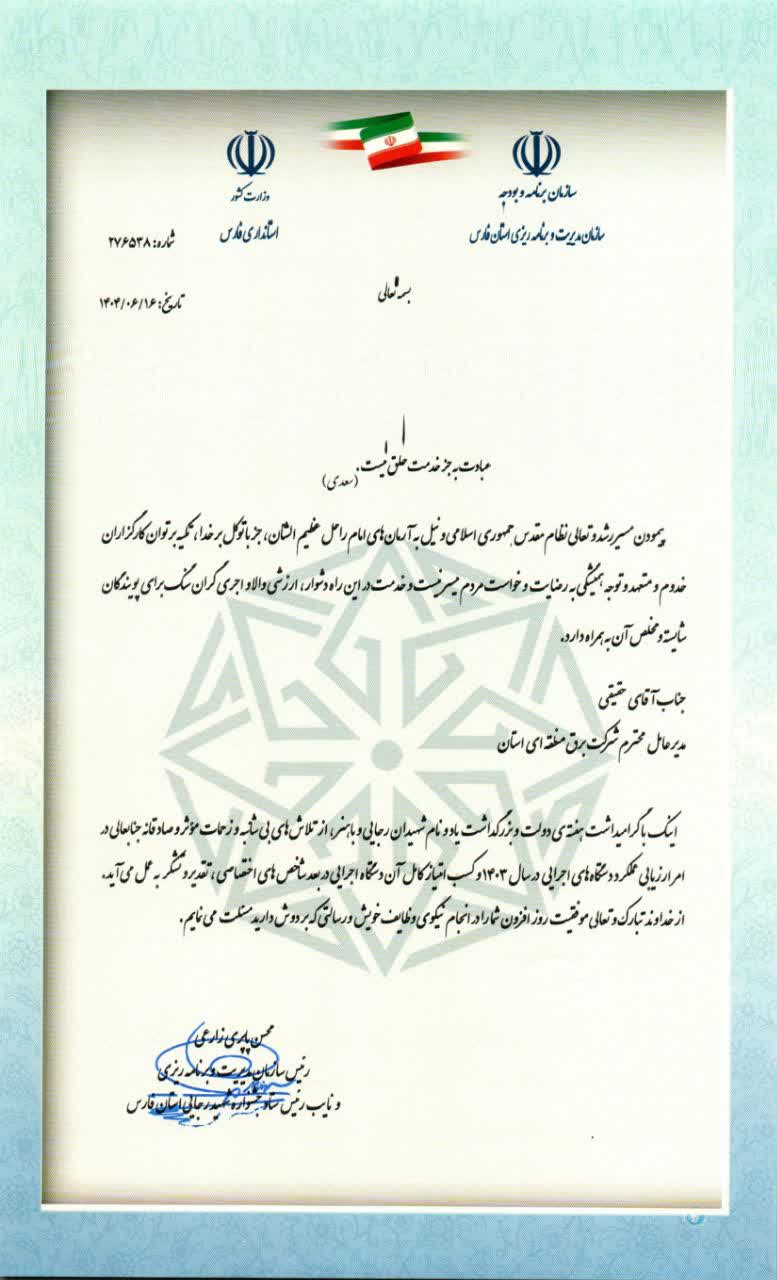 سازمان برنامه و بودجه
سازمان مدیریت و برنامه ریزی استان فارس
وزارت کشور
استانداری فارس
شماره: ۲۷۶۵۳۸
تاریخ: ۱۴۰۴/۰۶/۱۶
بسمه تعالی
عبادت به جز خدمت خلق نیست.
(سعدی)
پیمودن مسیر رشد و تعالی نظام مقدس جمهوری اسلامی و نیل به آرمان های امام راحل عظیم الشان، جز با توکل بر خدا، تکیه بر توان کارگزاران
خدوم و متعهد و توجه همیشگی به رضایت و خواست مردم میسر نیست و خدمت در این راه دشوار، ارزشی والا و اجری گران سنگ برای پویندگان
شایسته و مخلص آن به همراه دارد.
جناب آقای حقیقی
مدیرعامل محترم شرکت برق منطقه ای استان
اینک با گرامیداشت هفته ی دولت و بزرگداشت یاد و نام شهیدان رجایی و باهنر، از تلاش های بی شائبه و زحمات مؤثر و صادقانه جنابعالی در
امر ارزیابی عملکرد دستگاه های اجرایی در سال ۱۴۰۳ و کسب امتیاز کامل آن دستگاه اجرایی در بعد شاخص های اختصاصی، تقدیر و تشکر به عمل می آید.
از خداوند تبارک و تعالی موفقیت روز افزون شما را در انجام نیکوی وظایف خویش و رسالتی که بر دوش دارید مسئلت می نمایم.
محسن پاپری زارعی
رئیس سازمان مدیریت و برنامه ریزی
و نایب رئیس ستاد جشنواره شهید رجایی استان فارس